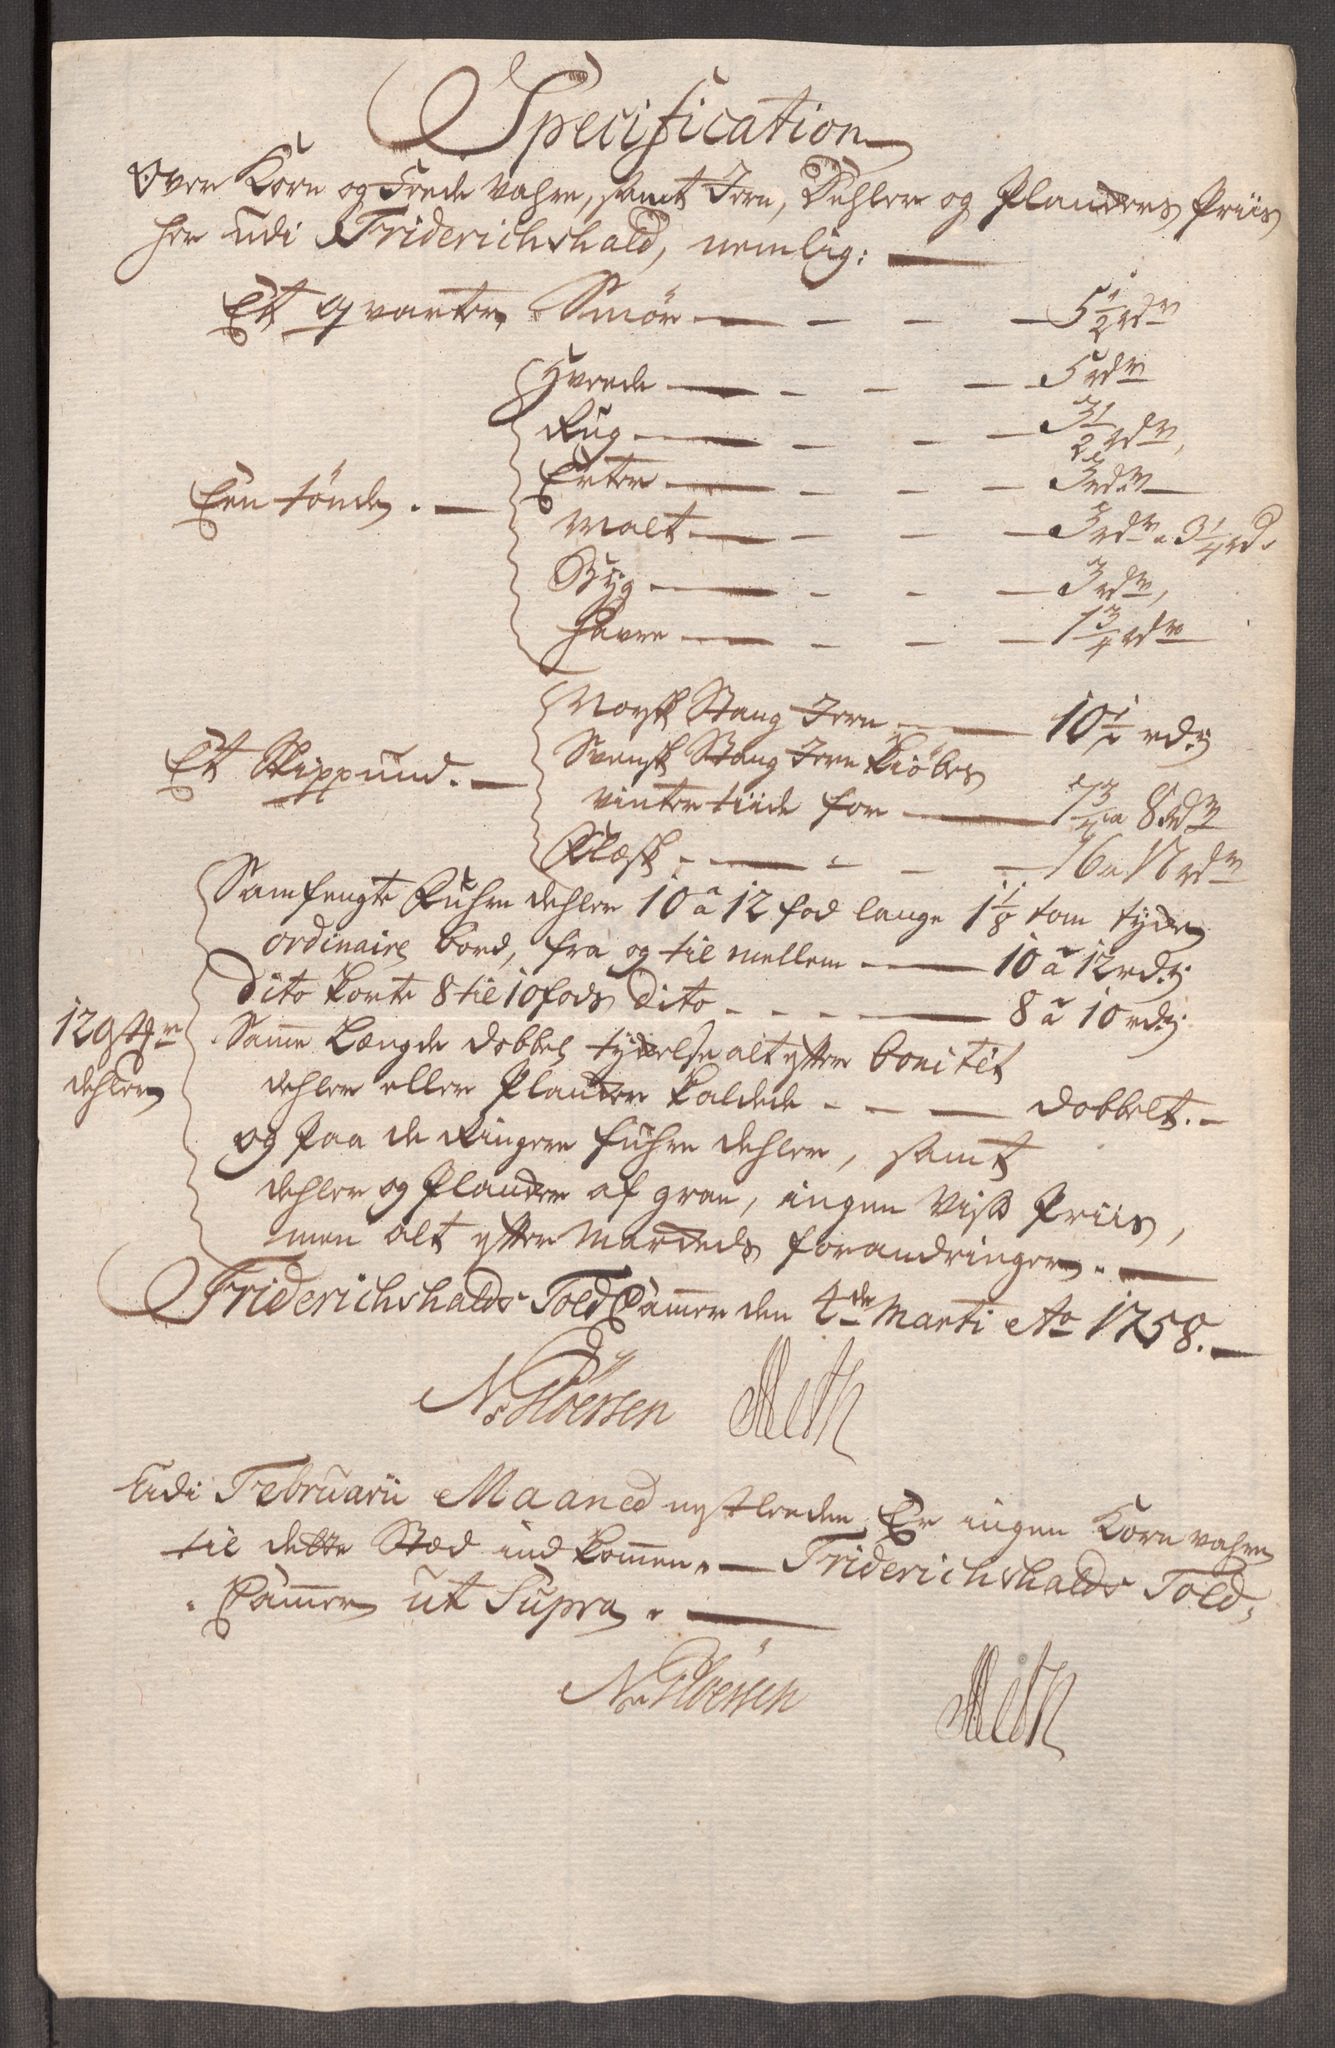 Specification
Over Korn og Fede Vahre, samt Jern, Dehler og Planckers Priis
her udi Friderichshald, nemlig:
Et qvarter Smör — 5 1/2 rdr
Hvede — 5 rdr
Rug — 3 1/2 rdr,
Erter — 3 rdr
Een tönde. — Malt — 3 rdr a 3 1/4 rd.
Byg — 3 rdr,
Havre — 1 3/4 rdr
Norsk Stang Jern — 10 1/2 rd:
Et Skippund. — Svensk Stang Jern kiöbes
vinter tiide for — 7 3/4 a 8 rdr
Flæsk — 16 a 17 rdr
Samfengte Fuhre dehler 10 a 12 fod lange 1 1/8 tom tyde
ordinaire bord, fra og til mellem — 10 a 12 rd:
Dito korte 8 til 10 fods Dito — 8 a 10 rd:
129 Str Samme Længde dobbel tydelse alt efter bonitet
dehler dehler eller Plancker kaldede — dobbelt. —
og paa de Ringere fuhre dehler, samt
dehler og Plancker af gran, ingen Viss Priis,
men alt efter Marckeds forandringer. —
Friderichshalds Told Cammer den 4de Marti Ao 1758. —
Udi Februarii Maaned nestleeden, Er ingen Korn vahre
til dette Stæd indkommen. — Friderichshalds Told,
Cammer ut Supra. —